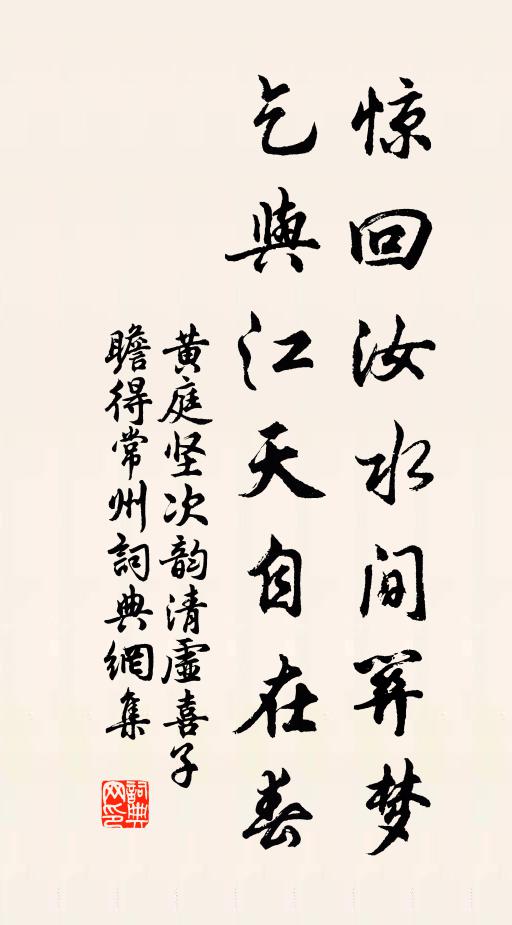 惊回汝水间关梦
乞與江天自在春
黄庭坚次韵清虚喜子
瞻得常州詞典網集
詞典网印